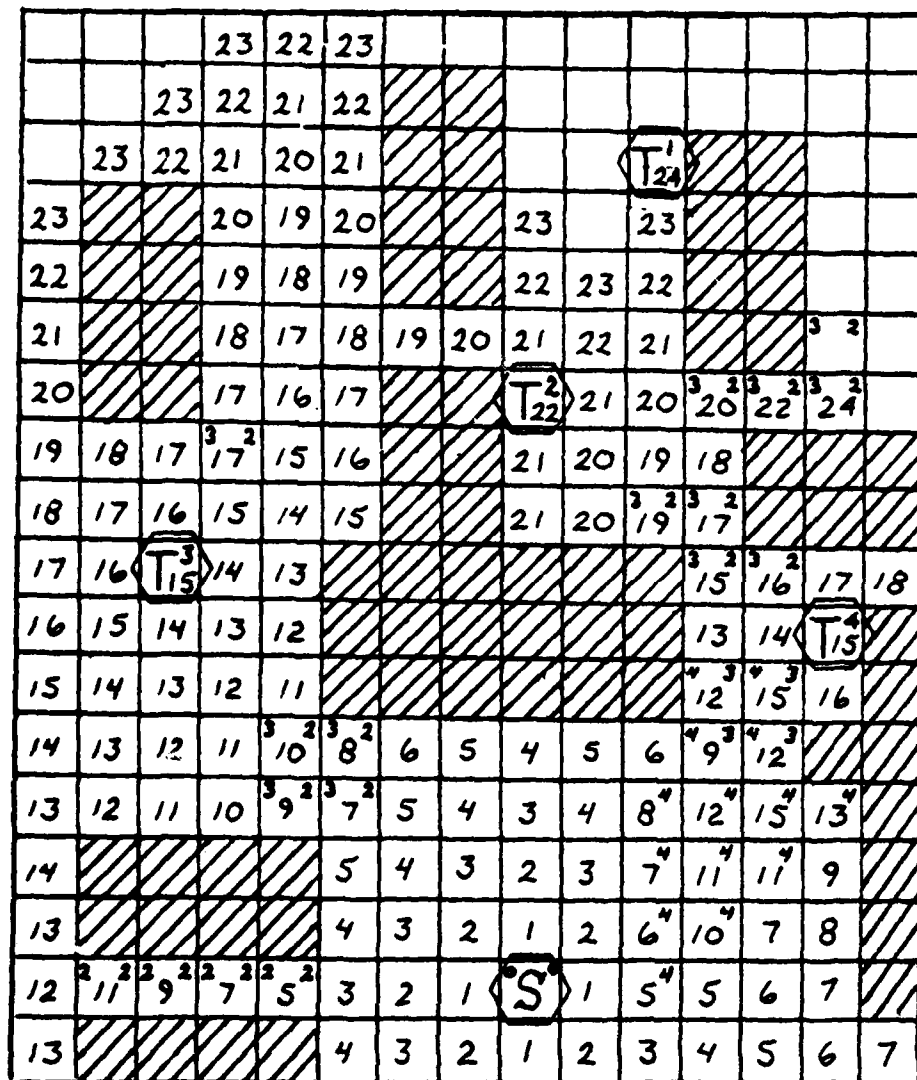 23 22 23
23 22 21 22
23 22 21 20 21 T 1 24
23 20 19 20 23 23
22 19 18 19 22 23 22
21 18 17 18 19 20 21 22 21 3 2
20 17 16 17 T 2 22 21 20 3 20 2 3 22 2 3 24 2
19 18 17 3 17 2 15 16 21 20 19 18
18 17 16 15 14 15 21 20 3 19 2 3 17 2
17 16 T 3 15 14 13 3 15 2 3 16 2 17 18
16 15 14 13 12 13 14 T 4 15
15 14 13 12 11 4 12 3 4 15 3 16
14 13 12 11 3 10 2 3 8 2 6 5 4 5 6 4 9 3 4 12 3
13 12 11 10 3 9 2 3 7 2 5 4 3 4 8 4 12 4 15 4 13 4
14 5 4 3 2 3 7 4 11 4 11 4 9
13 4 3 2 1 2 6 4 10 4 7 8
12 2 11 2 2 9 2 2 7 2 2 5 2 3 2 1 0 S 0 1 5 4 5 6 7
13 4 3 2 1 2 3 4 5 6 7